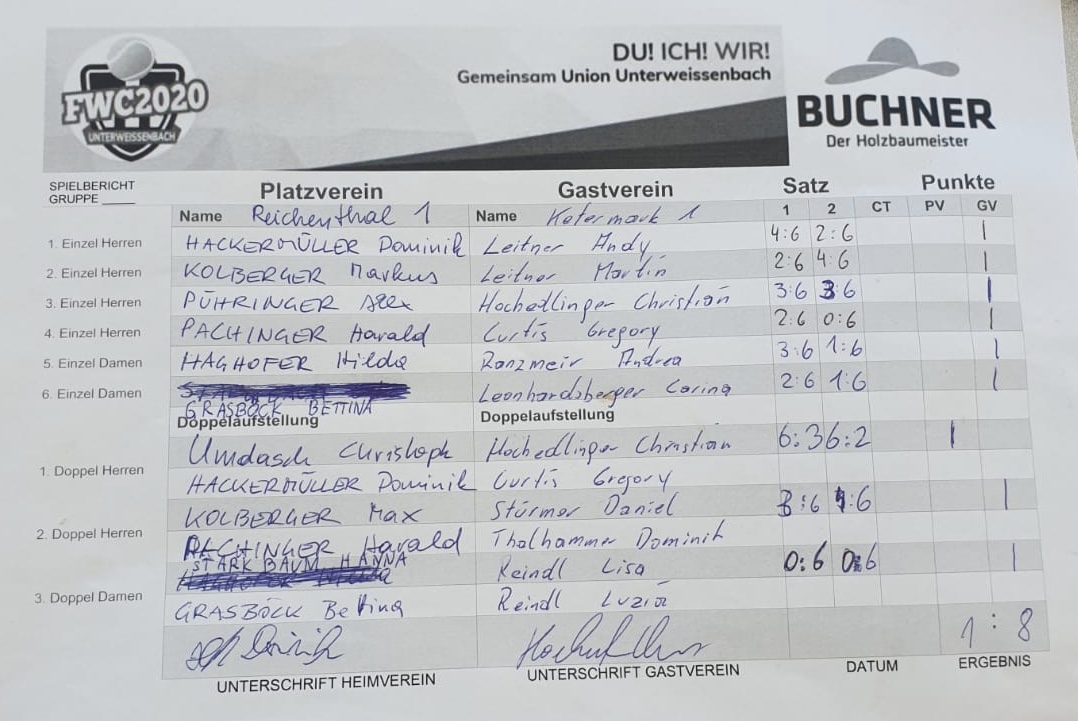 DU! ICH! WIR!
Gemeinsam Union Unterweissenbach
FWC2020
UNTERWEISSENBACH
BUCHNER
Der Holzbaumeister
SPIELBERICHT
GRUPPE
Platzverein Gastverein Satz Punkte
Name Reichenthal 1 Name Ketermark 1 1 2 CT PV GV
1. Einzel Herren HACKERMÜLLER Dominik Leitner Andy 4:6 2:6 |
2. Einzel Herren KOLBERGER Markus Leitner Martin 2:6 4:6 |
3. Einzel Herren PÜHRINGER Alex Hochedlinger Christian 3:6 3:6 |
4. Einzel Herren PACHINGER Harald Curtis Gregory 2:6 0:6 |
5. Einzel Damen HAGHOFER Hilda Ranzmeir Andrea 3:6 1:6 |
6. Einzel Damen Leonhardsberger Carina 2:6 1:6 |
GRASBÖCK BETTINA
Doppelaufstellung Doppelaufstellung
Umdasch Christoph Hochedlinger Christian 6:3 6:2 |
1. Doppel Herren
HACKERMÜLLER Dominik Curtis Gregory
KOLBERGER Max Stürmer Daniel 3:6 1:6 |
2. Doppel Herren
PACHINGER Harald Thalhammer Dominik
STARKBAUM HANNA
Reindl Lisa 0:6 0:6 |
3. Doppel Damen
GRASBÖCK Bettina Reindl Luzia
1:8
UNTERSCHRIFT HEIMVEREIN UNTERSCHRIFT GASTVEREIN DATUM ERGEBNIS